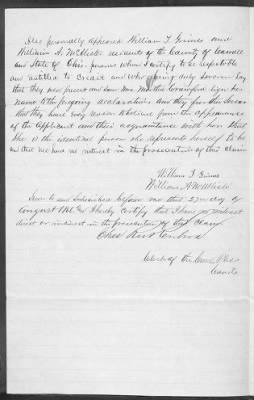 Also personally appeared William T. Grimes and
William A. McAllister residents of the County of
and State of Ohio persons whom I certify to be respectable
and entitled to credit and who being duly sworn say
that they were present and saw Mrs Martha Crawford sign her
name to the foregoing declaration and they further swear
that they have every reason to believe from the appearance
of the applicant and their acquaintance with her that
she is the identical person she represents herself to be
and that we have no interest in the prosecution of this claim
William T. Grimes
William A. McAllister
Sworn to and subscribed before me this day of
August & I hereby certify that I have no interest
direct or indirect in the prosecution of this claim
Clerk of the Court